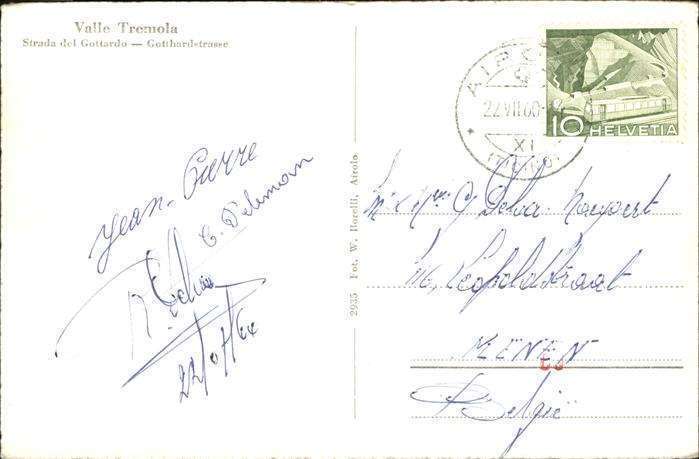 Valle Tremola
Strada del Gottardo — Gotthardstrasse
Jean-Pierre
22/07/60
2935 Fot. W. Borelli, Airolo
AIROLO
22.VII.60
XI
(TICINO)
10 HELVETIA
Mr & Mme G Delva-
116, Leopoldstraat
MENEN
België